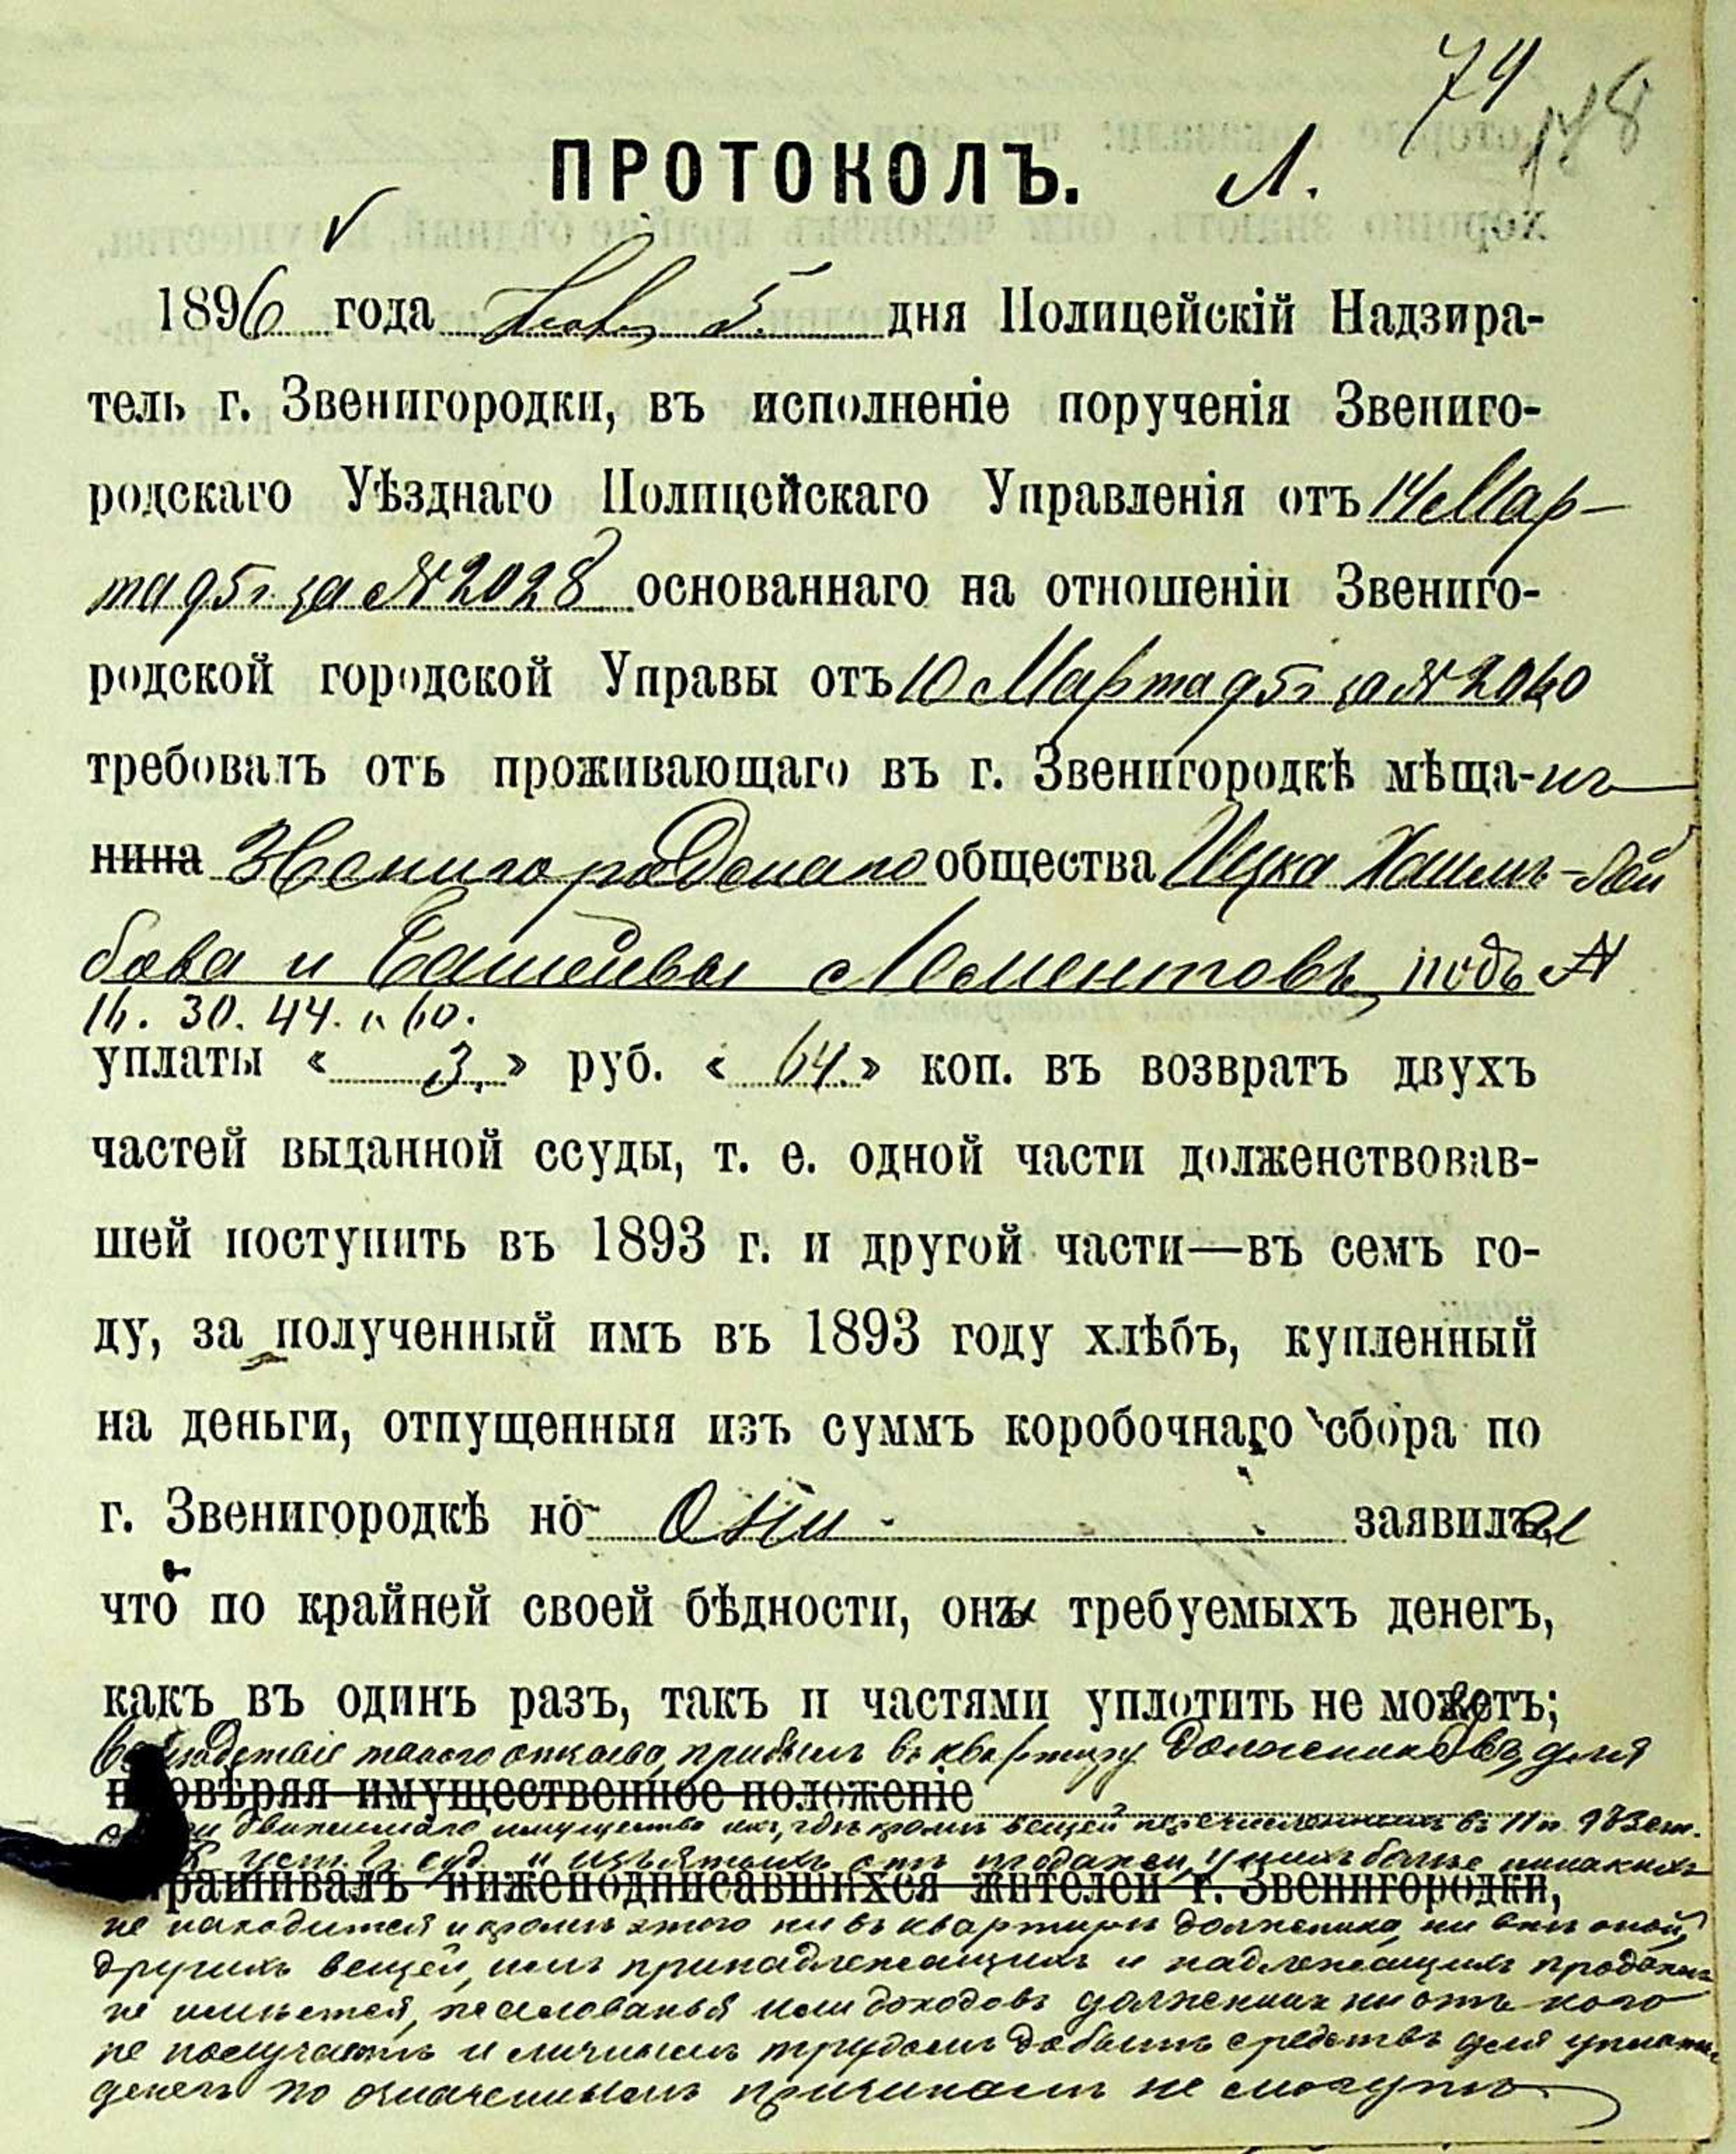 74
178
ПРОТОКОЛЪ. Л.
1896 года 5 дня Полицейскій Надзира-
тель г. Звенигородки, въ исполненіе порученія Звениго-
родскаго Уѣзднаго Полицейскаго Управленія отъ 14 Мар-
та 95 г. за № 2028 основаннаго на отношеніи Звениго-
родской городской Управы отъ 10 Марта 95 г за № 2040
требовалъ отъ проживающаго въ г. Звенигородкѣ мѣща-нъ
нина Звенигородскаго общества Ицка Хаимъ-Лей
бова и Башевы подъ №
16. 30. 44. и 60.
уплаты « 3. » руб. « 64. » коп. въ возвратъ двухъ
частей выданной ссуды, т. е. одной части долженствовав-
шей поступить въ 1893 г. и другой части—въ семъ го-
ду, за полученный имъ въ 1893 году хлѣбъ, купленный
на деньги, отпущенныя изъ суммъ коробочнаго сбора по
г. Звенигородкѣ но Они заявилъи
что по крайней своей бѣдности, онъи требуемыхъ денегъ,
какъ въ одинъ разъ, такъ и частями уплотить не можетъ;
такого отзыва, прибылъ въ квартиру должниковъ, для
провѣряя имущественное положеніе
движимаго имущества ихъ, гдѣ кромѣ вещей перечисленныхъ въ 11 п. 973 ст.
уст. гр. суд. и изъятыхъ отъ продажи, у нихъ болѣе никакихъ
спрашивалъ нижеподписавшихся жителей г. Звенигородки,
не находится и кромѣ этого ни въ квартирѣ должника, ни внѣ оной,
другихъ вещей, имъ принадлежащихъ и надлежащихъ продажѣ
не имѣется, жалованья или доходовъ должники ни отъ кого
не получаютъ и личнымъ трудомъ добыть средствъ для уплаты
денегъ по означеннымъ причинамъ не могутъ